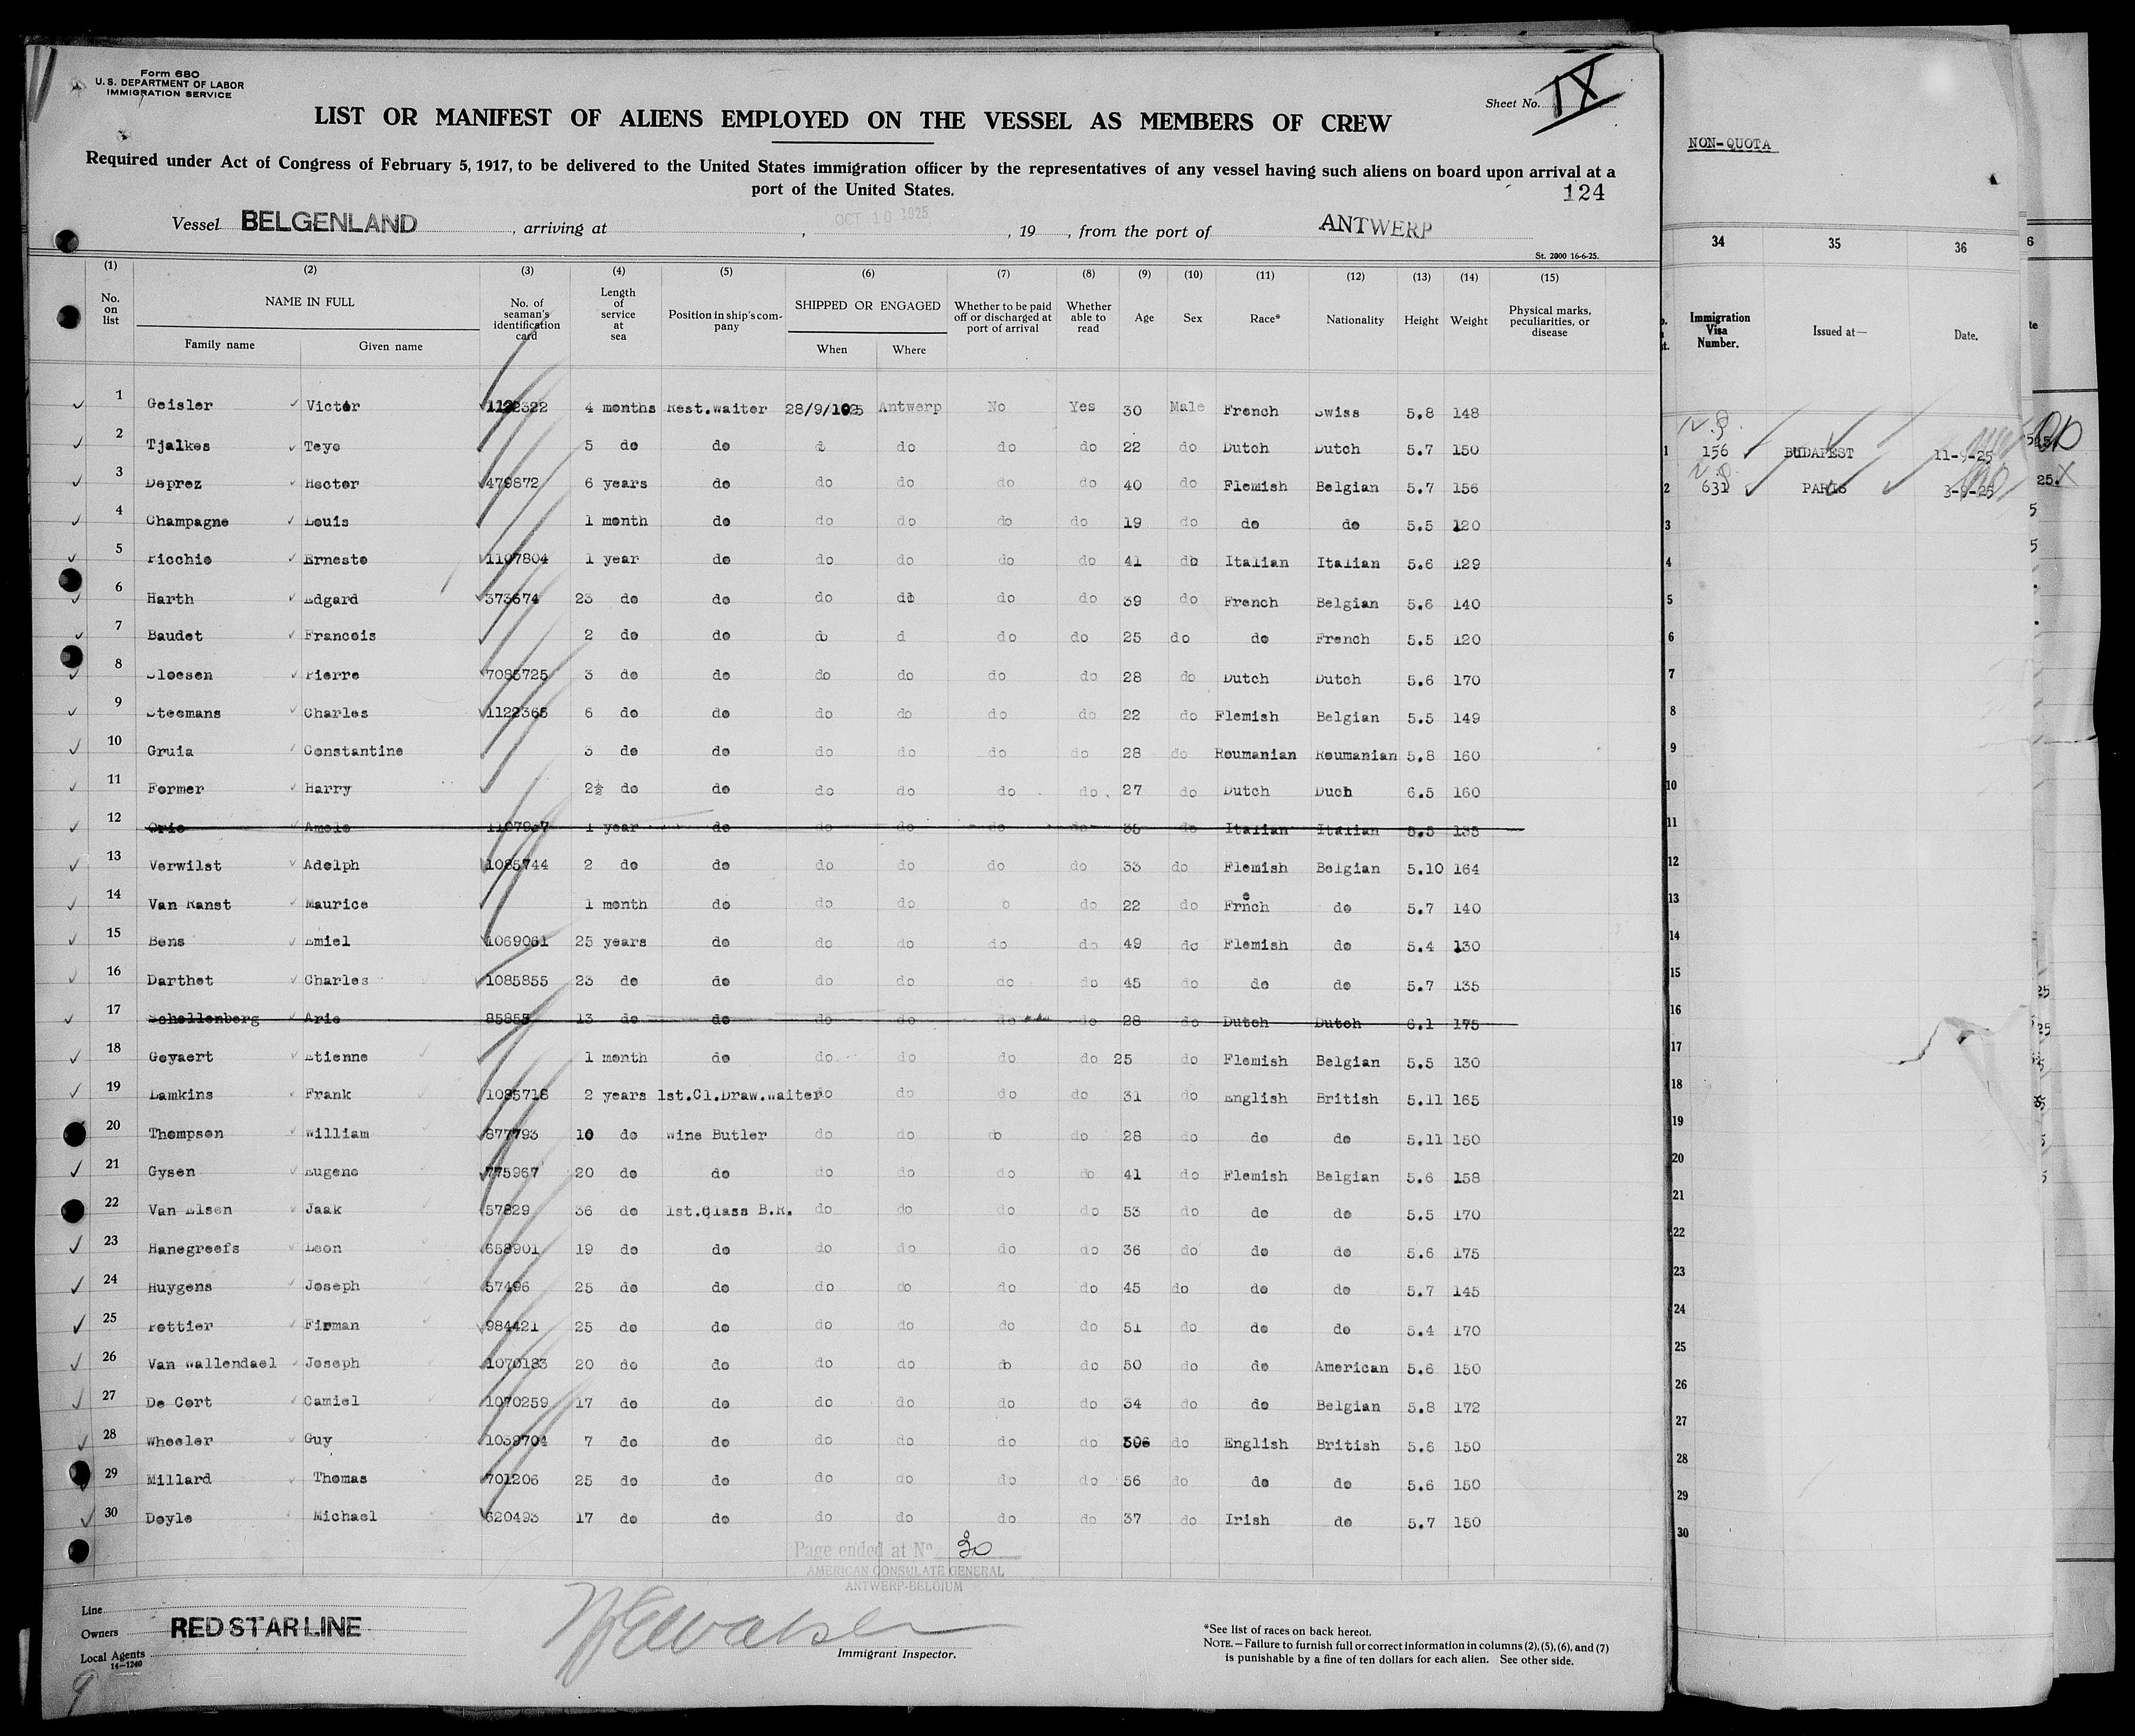 Form 680
U. S. DEPARTMENT OF LABOR
IMMIGRATION SERVICE
Sheet No. IX
LIST OR MANIFEST OF ALIENS EMPLOYED ON THE VESSEL AS MEMBERS OF CREW
Required under Act of Congress of February 5, 1917, to be delivered to the United States immigration officer by the representatives of any vessel having such aliens on board upon arrival at a
port of the United States.
124
Vessel BELGENLAND, arriving at , OCT 10 1925, 19 , from the port of ANTWERP
St. 2000 16-6-25.
(1) (2) (3) (4) (5) (6) (7) (8) (9) (10) (11) (12) (13) (14) (15)
No. on list NAME IN FULL No. of seaman's identification card Length of service at sea Position in ship's company SHIPPED OR ENGAGED Whether to be paid off or discharged at port of arrival Whether able to read Age Sex Race* Nationality Height Weight Physical marks, peculiarities, or disease
Family name Given name When Where
1 Geisler Victor 1122322 4 months Rest.Waiter 28/9/1925 Antwerp No Yes 30 Male French Swiss 5.8 148
2 Tjalkes Teye 5 do do d do do do 22 do Dutch Dutch 5.7 150
3 Deprez Hector 479872 6 years do do do do do 40 do Flemish Belgian 5.7 156
4 Champagne Louis 1 month do do do do do 19 do do do 5.5 120
5 Picchio Ernesto 1107804 1 year do do do do do 41 do Italian Italian 5.6 129
6 Harth Edgard 373674 23 do do do do do do 39 do French Belgian 5.6 140
7 Baudet Francois 2 do do do d do do 25 do do French 5.5 120
8 Sloesen Pierre 7085725 3 do do do do do do 28 do Dutch Dutch 5.6 170
9 Steemans Charles 1122365 6 do do do do do do 22 do Flemish Belgian 5.5 149
10 Gruia Constantine 3 do do do do do do 28 do Roumanian Roumanian 5.8 160
11 Former Harry 2½ do do do do do do 27 do Dutch Duch 6.5 160
12 Orio Amelo 1 year do do do do do 35 do Italian Italian 5.5 135
13 Verwilst Adolph 1085744 2 do do do do do do 33 do Flemish Belgian 5.10 164
14 Van Ranst Maurice 1 month do do do o do 22 do Frnech do 5.7 140
15 Bens Emiel 1069061 25 years do do do do do 49 do Flemish do 5.4 130
16 Darthet Charles 1085855 23 do do do do do do 45 do do do 5.7 135
17 Schellenberg Arie 85855 13 do do do do do do 28 do Dutch Dutch 6.1 175
18 Geyaert Etienne 1 month do do do do do 25 do Flemish Belgian 5.5 130
19 Lamkins Frank 1085718 2 years 1st.Cl.Draw.Waiter do do do do 31 do English British 5.11 165
20 Thompson William 877793 10 do Wine Butler do do do do 28 do do do 5.11 150
21 Gysen Eugene 775967 20 do do do do do do 41 do Flemish Belgian 5.6 158
22 Van Elsen Jaak 57829 36 do 1st.Class B.R. do do do do 53 do do do 5.5 170
23 Hanegreefs Leon 658901 19 do do do do do do 36 do do do 5.6 175
24 Huygens Joseph 57496 25 do do do do do do 45 do do do 5.7 145
25 Pottier Firman 984421 25 do do do do do do 51 do do do 5.4 170
26 Van Wallendael Joseph 1070183 20 do do do do do do 50 do do American 5.6 150
27 De Cort Camiel 1070259 17 do do do do do do 34 do do Belgian 5.8 172
28 Wheeler Guy 1039704 7 do do do do do do do English British 5.6 150
29 Millard Thomas 701206 25 do do do do do do 56 do do do 5.6 150
30 Doyle Michael 620493 17 do do do do do do 37 do Irish do 5.7 150
Page ended at No 30
AMERICAN CONSULATE GENERAL
ANTWERP-BELGIUM
Line
Owners RED STAR LINE
Local Agents
14—1240
9
Immigrant Inspector.
*See list of races on back hereof.
NOTE.—Failure to furnish full or correct information in columns (2), (5), (6), and (7)
is punishable by a fine of ten dollars for each alien. See other side.
NON-QUOTA
34 35 36
Immigration Visa Number. Issued at— Date.
N.Q.
1 156 BUDAPEST 11-9-25
N.Q.
2 631 PARIS 3-9-25
3
4
5
6
7
8
9
10
11
12
13
14
15
16
17
18
19
20
21
22
23
24
25
26
27
28
29
30